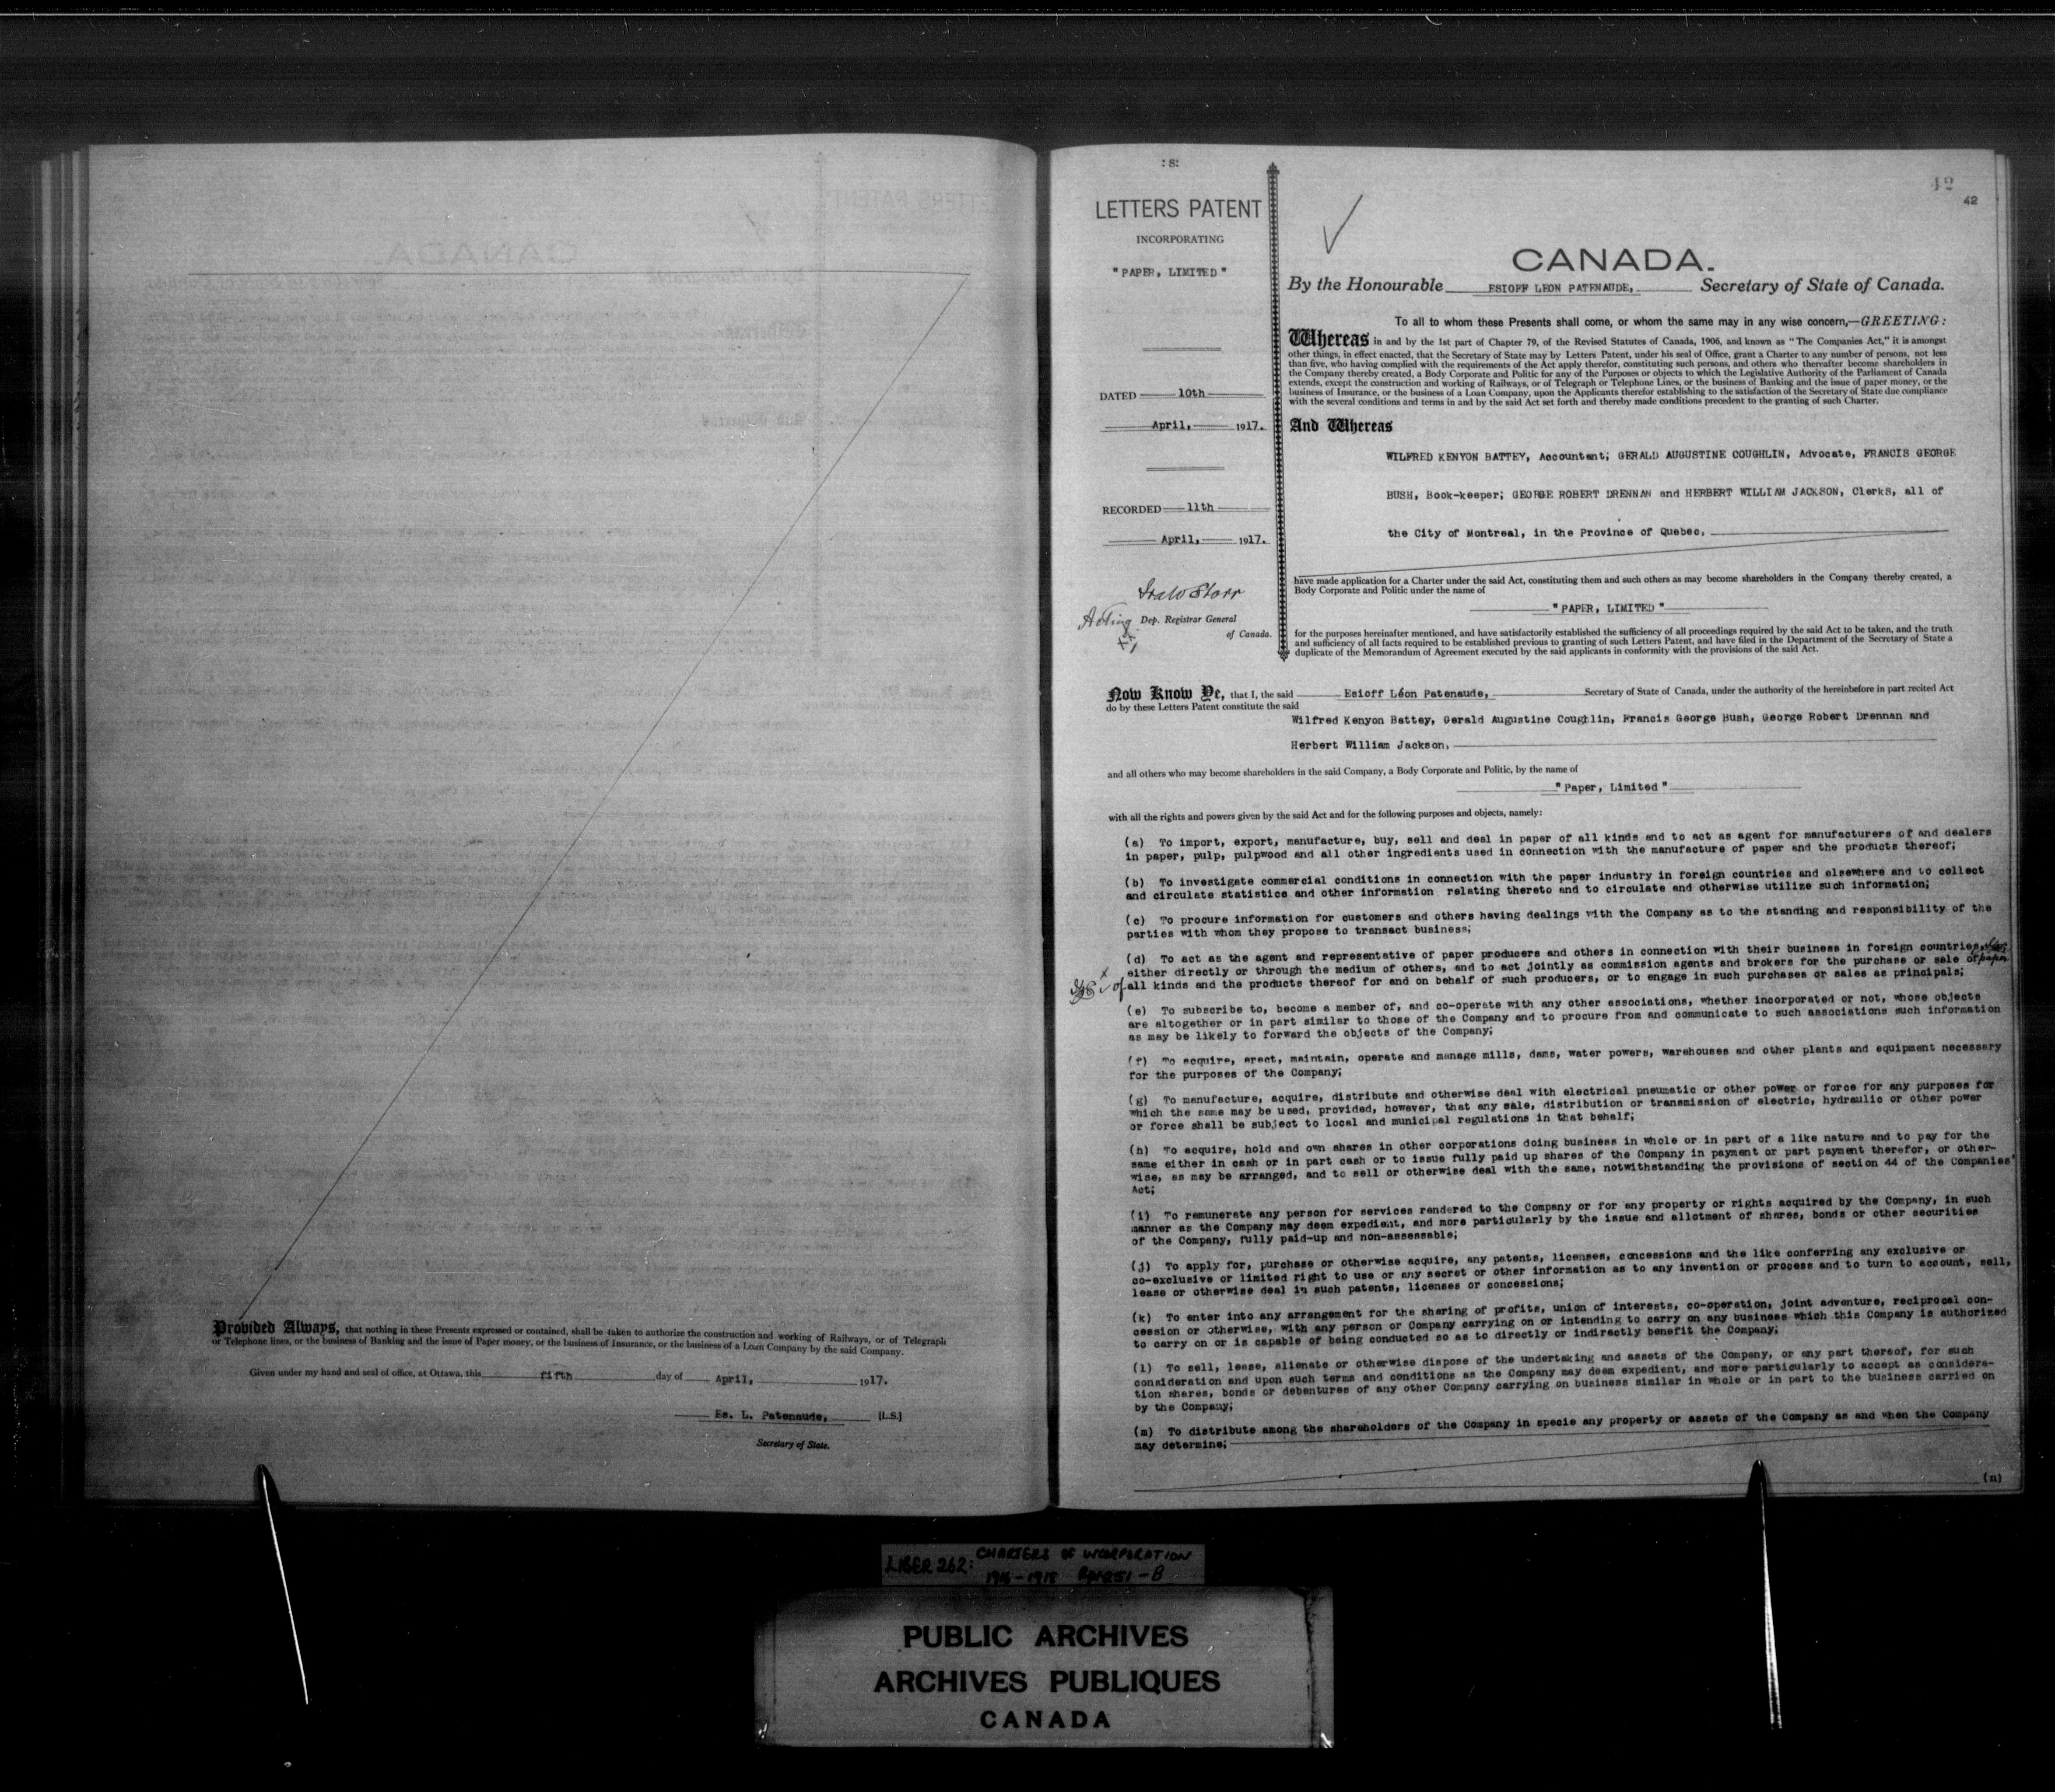 Provided Always, that nothing in these Presents expressed or contained, shall be taken to authorize the construction and working of Railways, or of Telegraph
or Telephone lines, or the business of Banking and the issue of Paper money, or the business of Insurance, or the business of a Loan Company by the said Company.
Given under my hand and seal of office, at Ottawa, this fifth day of April, 1917.
Es. L. Patenaude, [L.S.]
Secretary of State.
: 8:
42
42
LETTERS PATENT
INCORPORATING
"PAPER, LIMITED"
DATED 10th
April, 1917.
RECORDED 11th
April, 1917.
Acting Dep. Registrar General
of Canada.
CANADA.
By the Honourable ESIOFF LEON PATENAUDE, Secretary of State of Canada.
To all to whom these Presents shall come, or whom the same may in any wise concern,—GREETING:
Whereas in and by the 1st part of Chapter 79, of the Revised Statutes of Canada, 1906, and known as "The Companies Act," it is amongst
other things, in effect enacted, that the Secretary of State may by Letters Patent, under his seal of Office, grant a Charter to any number of persons, not less
than five, who having complied with the requirements of the Act apply therefor, constituting such persons, and others who thereafter become shareholders in
the Company thereby created, a Body Corporate and Politic for any of the Purposes or objects to which the Legislative Authority of the Parliament of Canada
extends, except the construction and working of Railways, or of Telegraph or Telephone Lines, or the business of Banking and the issue of paper money, or the
business of Insurance, or the business of a Loan Company, upon the Applicants therefor establishing to the satisfaction of the Secretary of State due compliance
with the several conditions and terms in and by the said Act set forth and thereby made conditions precedent to the granting of such Charter.
And Whereas
WILFRED KENYON BATTEY, Accountant; GERALD AUGUSTINE COUGHLIN, Advocate, FRANCIS GEORGE
BUSH, Book-keeper; GEORGE ROBERT DRENNAN and HERBERT WILLIAM JACKSON, Clerks, all of
the City of Montreal, in the Province of Quebec,
have made application for a Charter under the said Act, constituting them and such others as may become shareholders in the Company thereby created, a
Body Corporate and Politic under the name of
"PAPER, LIMITED"
for the purposes hereinafter mentioned, and have satisfactorily established the sufficiency of all proceedings required by the said Act to be taken, and the truth
and sufficiency of all facts required to be established previous to granting of such Letters Patent, and have filed in the Department of the Secretary of State a
duplicate of the Memorandum of Agreement executed by the said applicants in conformity with the provisions of the said Act.
Now Know Ye, that I, the said Esioff Léon Patenaude, Secretary of State of Canada, under the authority of the hereinbefore in part recited Act
do by these Letters Patent constitute the said
Wilfred Kenyon Battey, Gerald Augustine Coughlin, Francis George Bush, George Robert Drennan and
Herbert William Jackson,
and all others who may become shareholders in the said Company, a Body Corporate and Politic, by the name of
"Paper, Limited"
with all the rights and powers given by the said Act and for the following purposes and objects, namely:
(a) To import, export, manufacture, buy, sell and deal in paper of all kinds and to act as agent for manufacturers of and dealers
in paper, pulp, pulpwood and all other ingredients used in connection with the manufacture of paper and the products thereof;
(b) To investigate commercial conditions in connection with the paper industry in foreign countries and elsewhere and to collect
and circulate statistics and other information relating thereto and to circulate and otherwise utilize such information;
(c) To procure information for customers and others having dealings with the Company as to the standing and responsibility of the
parties with whom they propose to transact business;
(d) To act as the agent and representative of paper producers and others in connection with their business in foreign countries,
either directly or through the medium of others, and to act jointly as commission agents and brokers for the purchase or sale of paper
of all kinds and the products thereof for and on behalf of such producers, or to engage in such purchases or sales as principals;
(e) To subscribe to, become a member of, and co-operate with any other associations, whether incorporated or not, whose objects
are altogether or in part similar to those of the Company and to procure from and communicate to such associations such information
as may be likely to forward the objects of the Company;
(f) To acquire, erect, maintain, operate and manage mills, dams, water powers, warehouses and other plants and equipment necessary
for the purposes of the Company;
(g) To manufacture, acquire, distribute and otherwise deal with electrical pneumatic or other power or force for any purposes for
which the same may be used, provided, however, that any sale, distribution or transmission of electric, hydraulic or other power
or force shall be subject to local and municipal regulations in that behalf;
(h) To acquire, hold and own shares in other corporations doing business in whole or in part of a like nature and to pay for the
same either in cash or in part cash or to issue fully paid up shares of the Company in payment or part payment therefor, or other-
wise, as may be arranged, and to sell or otherwise deal with the same, notwithstanding the provisions of section 44 of the Companies'
Act;
(i) To remunerate any person for services rendered to the Company or for any property or rights acquired by the Company, in such
manner as the Company may deem expedient, and more particularly by the issue and allotment of shares, bonds or other securities
of the Company, fully paid-up and non-assessable;
(j) To apply for, purchase or otherwise acquire, any patents, licenses, concessions and the like conferring any exclusive or
co-exclusive or limited right to use or any secret or other information as to any invention or process and to turn to account, sell,
lease or otherwise deal in such patents, licenses or concessions;
(k) To enter into any arrangement for the sharing of profits, union of interests, co-operation, joint adventure, reciprocal con-
cession or otherwise, with any person or Company carrying on or intending to carry on any business which this Company is authorized
to carry on or is capable of being conducted so as to directly or indirectly benefit the Company;
(l) To sell, lease, alienate or otherwise dispose of the undertaking and assets of the Company, or any part thereof, for such
consideration and upon such terms and conditions as the Company may deem expedient, and more particularly to accept as considera-
tion shares, bonds or debentures of any other Company carrying on business similar in whole or in part to the business carried on
by the Company;
(m) To distribute among the shareholders of the Company in specie any property or assets of the Company as and when the Company
may determine;
(n)
LIBER 262: CHARTERS OF INCORPORATION
1916-1918
PUBLIC ARCHIVES
ARCHIVES PUBLIQUES
CANADA